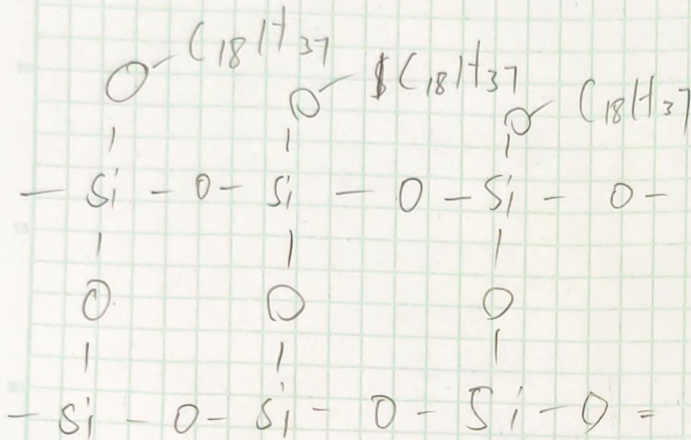 C18H37 C18H37 C18H37
O O O
- Si - O - Si - O - Si - O -
O O O
- Si - O - Si - O - Si - O =